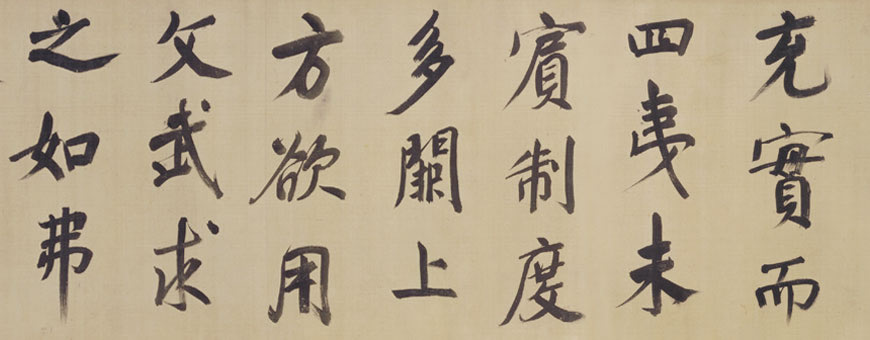 充實而
四夷未
賓制度
多闕上
方欲用
文武求
之如弗